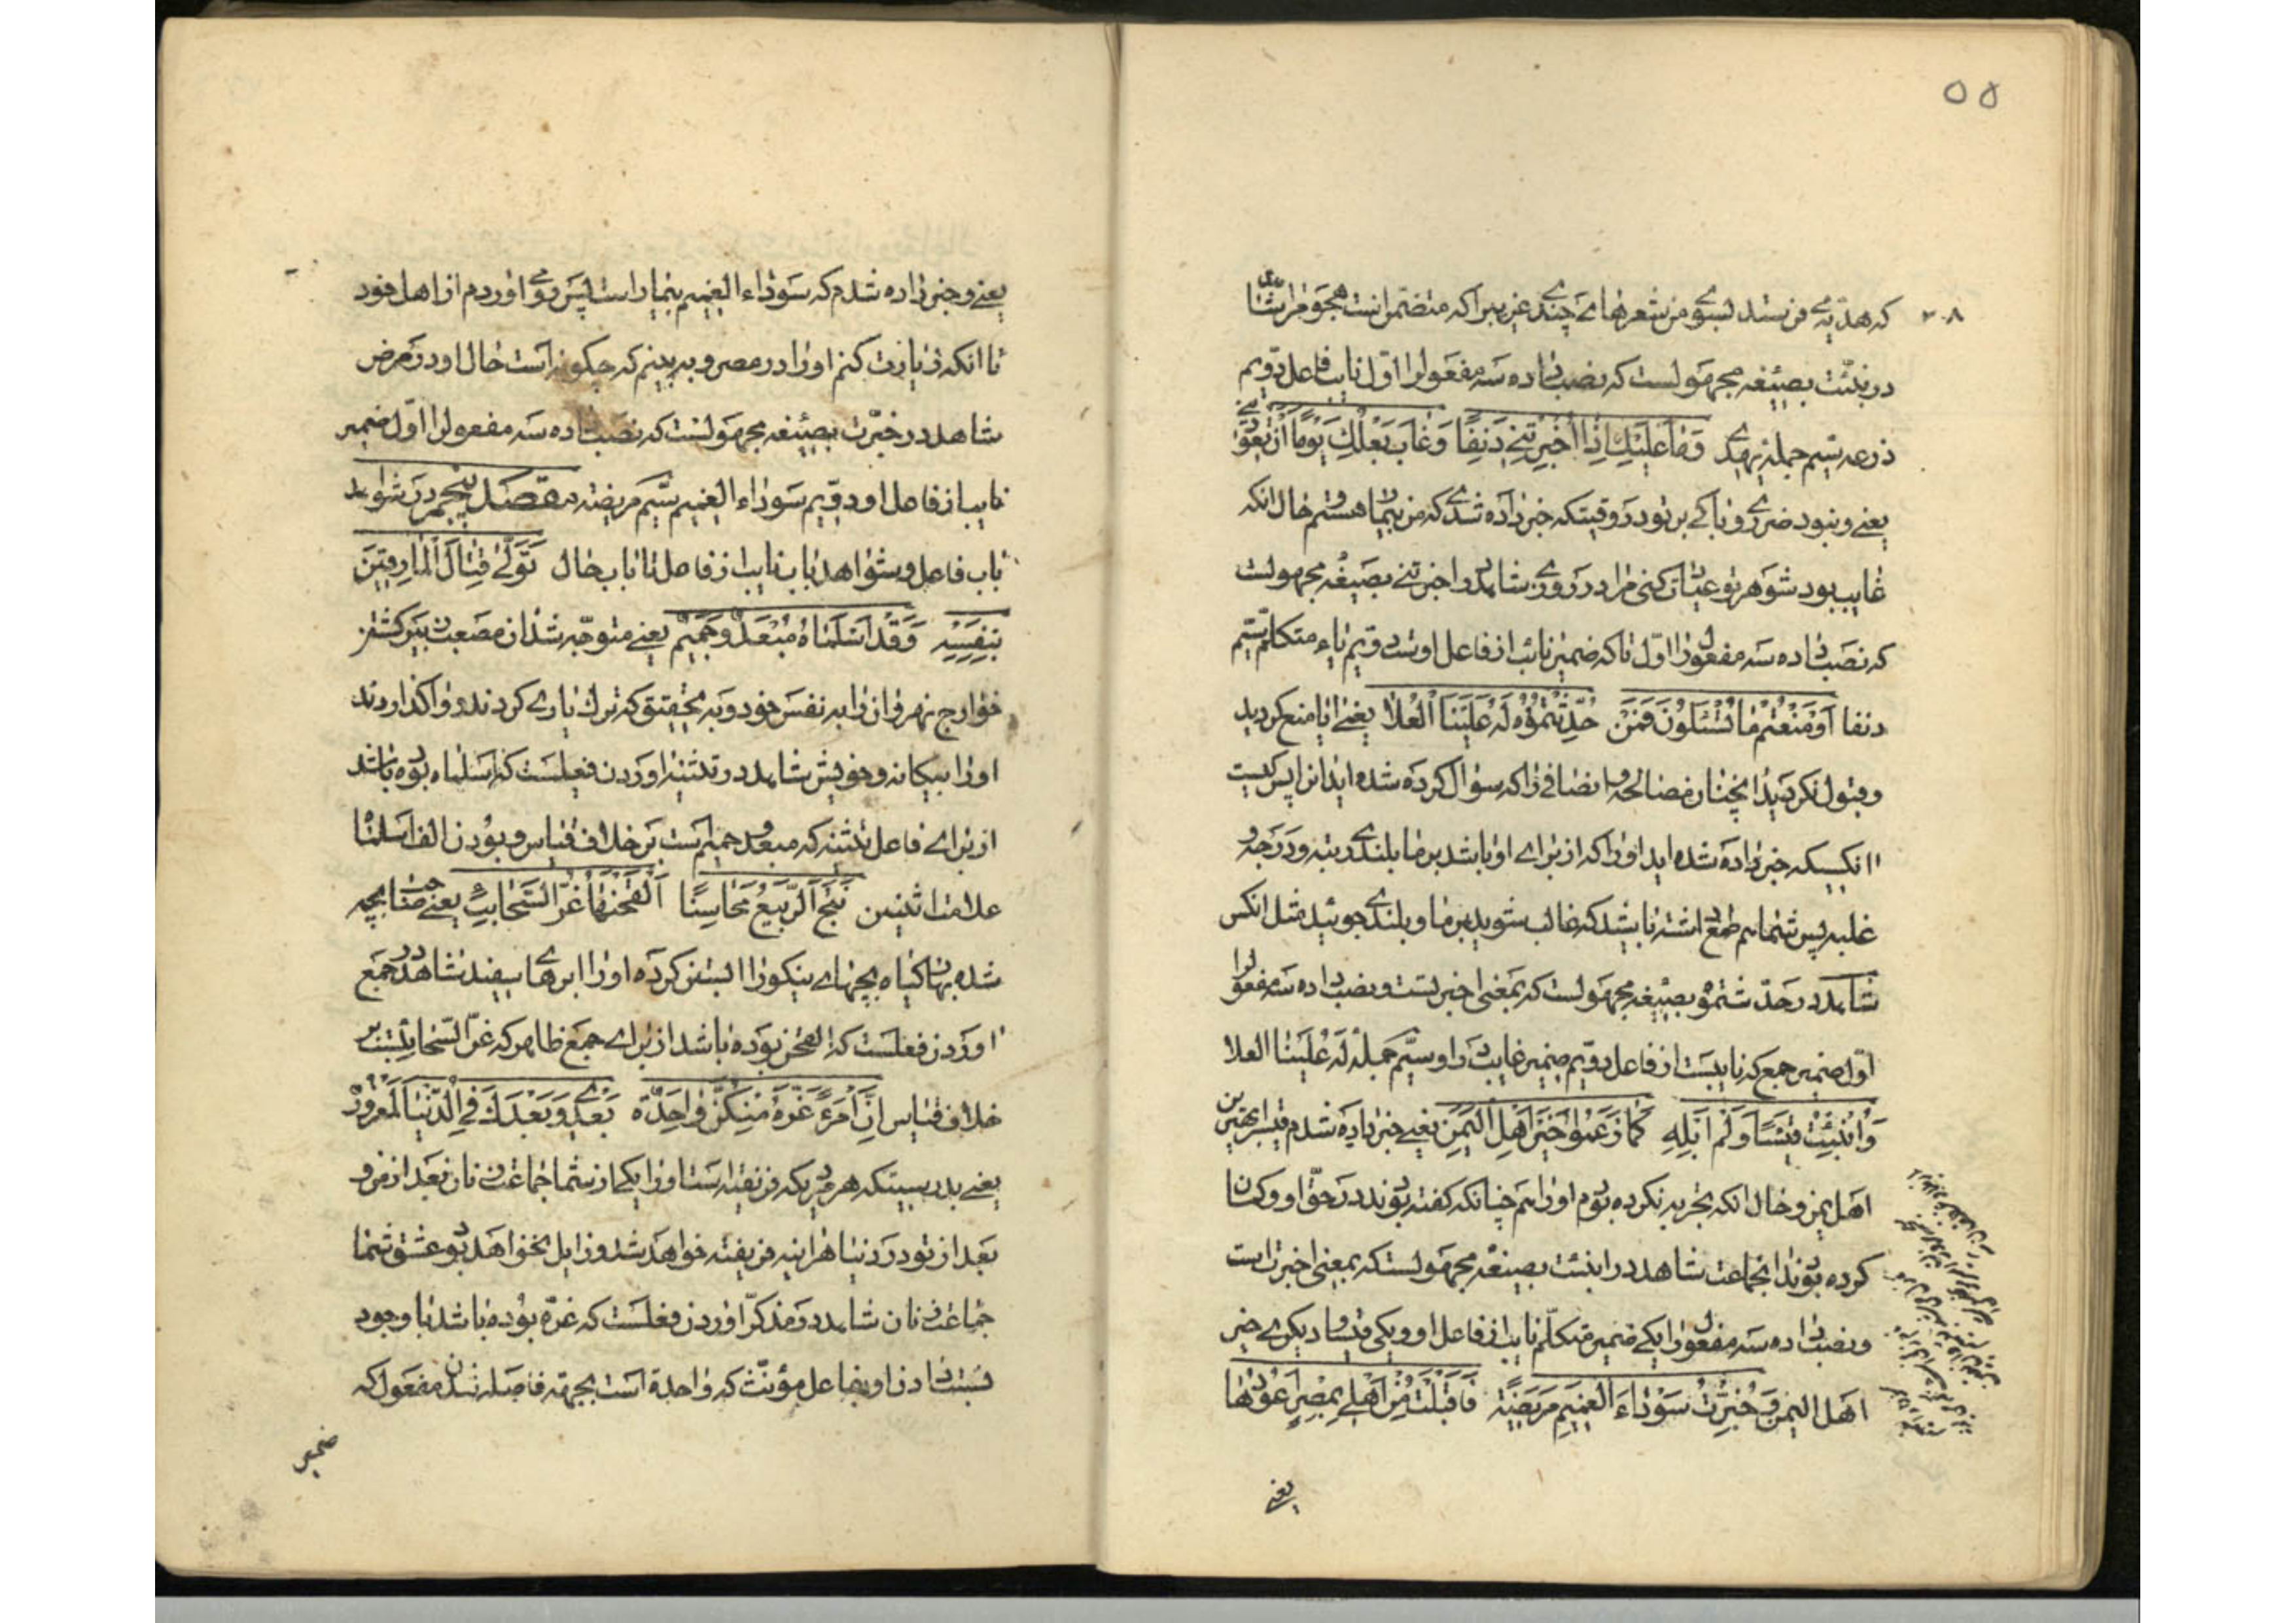 ۵۵
۲۰۸
که هدیه می فرستد بسوی من شعرهای چند غریب را که متضمن است هجو مرا شاهد
در نبئت بصیغه مجهولست که نصب داده سه مفعول را اول نایب فاعل دویم
ذرعه سیم جمله یهدی وَمَا عَلَیْكِ اِذَا أُخْبِرْتِنِی دَنِفًا وَغَابَ بَعْلُكِ یَوْمًا أَنْ تَعُودِینِی
یعنی و نبود ضرری و باکی بر تو در وقتیکه خبر داده شدی که من بیمار هستم و حال انکه
غایب بود شوهر تو عیادت کنی مرا در روزی شاهد در اخبرتنی بصیغه مجهولست
که نصب داده سه مفعول را اول تا که ضمیر نائب از فاعل اوست دویم یاء متکلم سیم
دنفا أَوْ مَنَعْتُمْ مَا تُسْئَلُونَ فَمَنْ حُدِّثْتُمُوهُ لَهُ عَلَیْنَا الْعُلَا یعنی ایا منع کردید
و قبول نکردید انچنان مصالحه و انصافی را که سؤال کرده شده اید از ان پس کیست
انکسیکه خبر داده شده اید او را که از برای او باشد بر ما بلندی رتبه و درجه و
غلبه پس شما هم طمع داشته باشید که غالب شوید بر ما و بلندی جوئید مثل انکس
شاهد در حدثتموه بصیغه مجهولست که بمعنی اخبرست و نصب داده سه مفعول را
اول ضمیر جمع که نایبست از فاعل دویم ضمیر غایب را و سیم جمله له علینا العلا
وَأُنْبِئْتُ قَیْسًا وَلَمْ أَبْلُهُ كَمَا زَعَمُوا خَیْرَ أَهْلِ الْیَمَنِ یعنی خبر داده شدم قیس را بهترین
اهل یمن و حال انکه تجربه نکرده بودم او را هم چنانکه گفته بودند در حق او و گمان
کرده بودند انجماعت شاهد در انبئت بصیغه مجهولست که بمعنی اخبرت است
و نصب داده سه مفعول را یکی ضمیر متکلم نایب از فاعل او و یکی قیسا و دیگری خیر
اهل الیمن وَخُبِّرْتُ سَوْدَاءَ الْغَمِیمِ مَرِیضَةً فَأَقْبَلْتُ مِنْ أَهْلِی بِمِصْرَ أَعُودُهَا
یعنی
یعنی و خبر داده شدم که سوداء الغمیم بیمار است پس روی اوردم از اهل خود
تا انکه زیارت کنم او را در مصر و به بینم که چگونه است حال او در مرض
شاهد در خبرت بصیغه مجهولست که نصب داده سه مفعول را اول ضمیر
نایب از فاعل او دویم سوداء الغمیم سیم مریضة مقصد پنجم در شواهد
باب فاعل و شواهد باب نایب از فاعل تا باب حال تَوَلَّی قِتَالَ الْمَارِقِینَ
بِنَفْسِهِ وَقَدْ أَسْلَمَاهُ مُبْعَدٌ وَحَمِیمٌ یعنی متوجه شد ان مصعب بن بیر کشتن
خوارج نهروان را به نفس خود و به تحقیق که ترك یاری کردند و واگذاردند
او را بیگانه و خویش شاهد در تثنیه اوردن فعلیست که اسلماه بوده باشد
از برای فاعل تثنیه که مبعد و حمیم است بر خلاف قیاس و بودن الف اسلما
علامت اثنین نُتِجَ الرَّبِیعُ مَحَاسِنًا أَلْقَحْنَهَا غُرُّ السَّحَائِبِ یعنی صاحب بچه
شده بهار گیاه بچهای نیکو را ابستن کرده او را ابرهای سفید شاهد در جمع
اوردن فعلست که القحن بوده باشد از برای جمع ظاهر که غر السحائبست بر
خلاف قیاس إِنَّ امْرَءً غَرَّهُ مِنْكُنَّ وَاحِدَةٌ بَعْدِی وَبَعْدَكِ فِی الدُّنْیَا لَمَغْرُورٌ
یعنی بدرستیکه هر مردیکه فریفته است او را یکی از شما جماعت زنان بعد از من و
بعد از تو در دنیا هراینه فریفته خواهد شد و زایل نخواهد بود عشق شما
جماعت زنان شاهد در مذکر اوردن فعلست که غره بوده باشد با وجود
نسبت دادن او بفاعل مؤنث که واحدة است بجهة فاصله شدن مفعول که
ضمیر